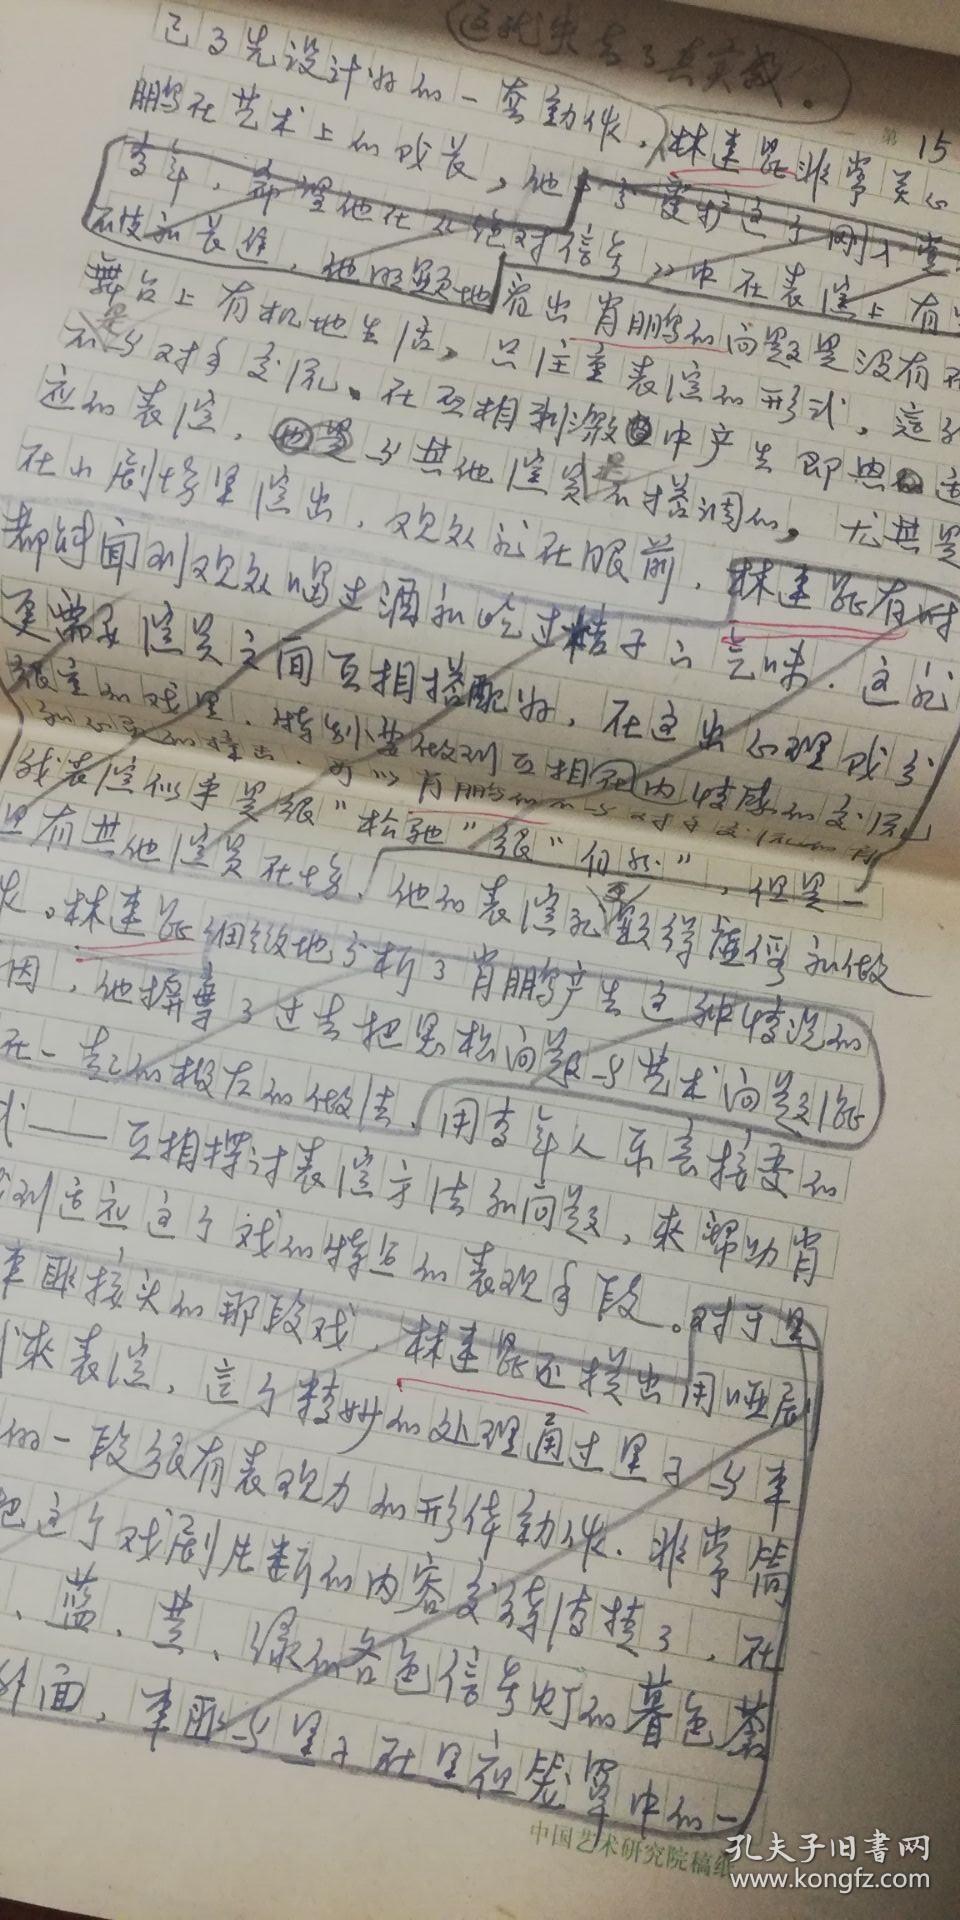 这就失去了真实感。
第 15
己事先设计好的一套动作,林连昆非常关心
鹏在艺术上的成长,他十分爱护这个刚入
青年,希望他在《绝对信号》中在表演上有
和长进,他明显地看出肖鹏的问题是没有在
舞台上有机地生活,只注重表演的形式,这
不与对手交流、在互相刺激中产生即兴适
应的表演,与其他演员是不搭调的,尤其是
在小剧场里演出,观众就在眼前,林连昆有时
都能闻到观众喝过酒和吃过桔子的气味,这就
更需要演员之间互相搭配好,在这出心理戏分
很重的戏里,特别要做到互相在内心情感的交流
和的撞击,肖鹏的不与对手交流的
我表演似乎是很"松弛"很"自然",但是一
里有其他演员在场,他的表演就更显得虚假和做
作。林连昆细致地分析了肖鹏产生这种情况的
因,他摒弃了过去把思想问题与艺术问题混
在一起的极左的做法,用青年人乐意接受的
式——互相探讨表演方法和问题,来帮助肖
到适应这个戏的特点的表现手段。对于黑
车匪接头的那段戏,林连昆还提出用哑剧
来表演,这个精妙的处理通过黑子与车
的一段很有表现力的形体动作,非常简
把这个戏剧片断的内容交待清楚了,在
、蓝、黄、绿的各色信号灯的暮色
外面,车匪与黑子在黑夜笼罩中的一
中国艺术研究院稿纸
孔夫子旧书网
www.kongfz.com